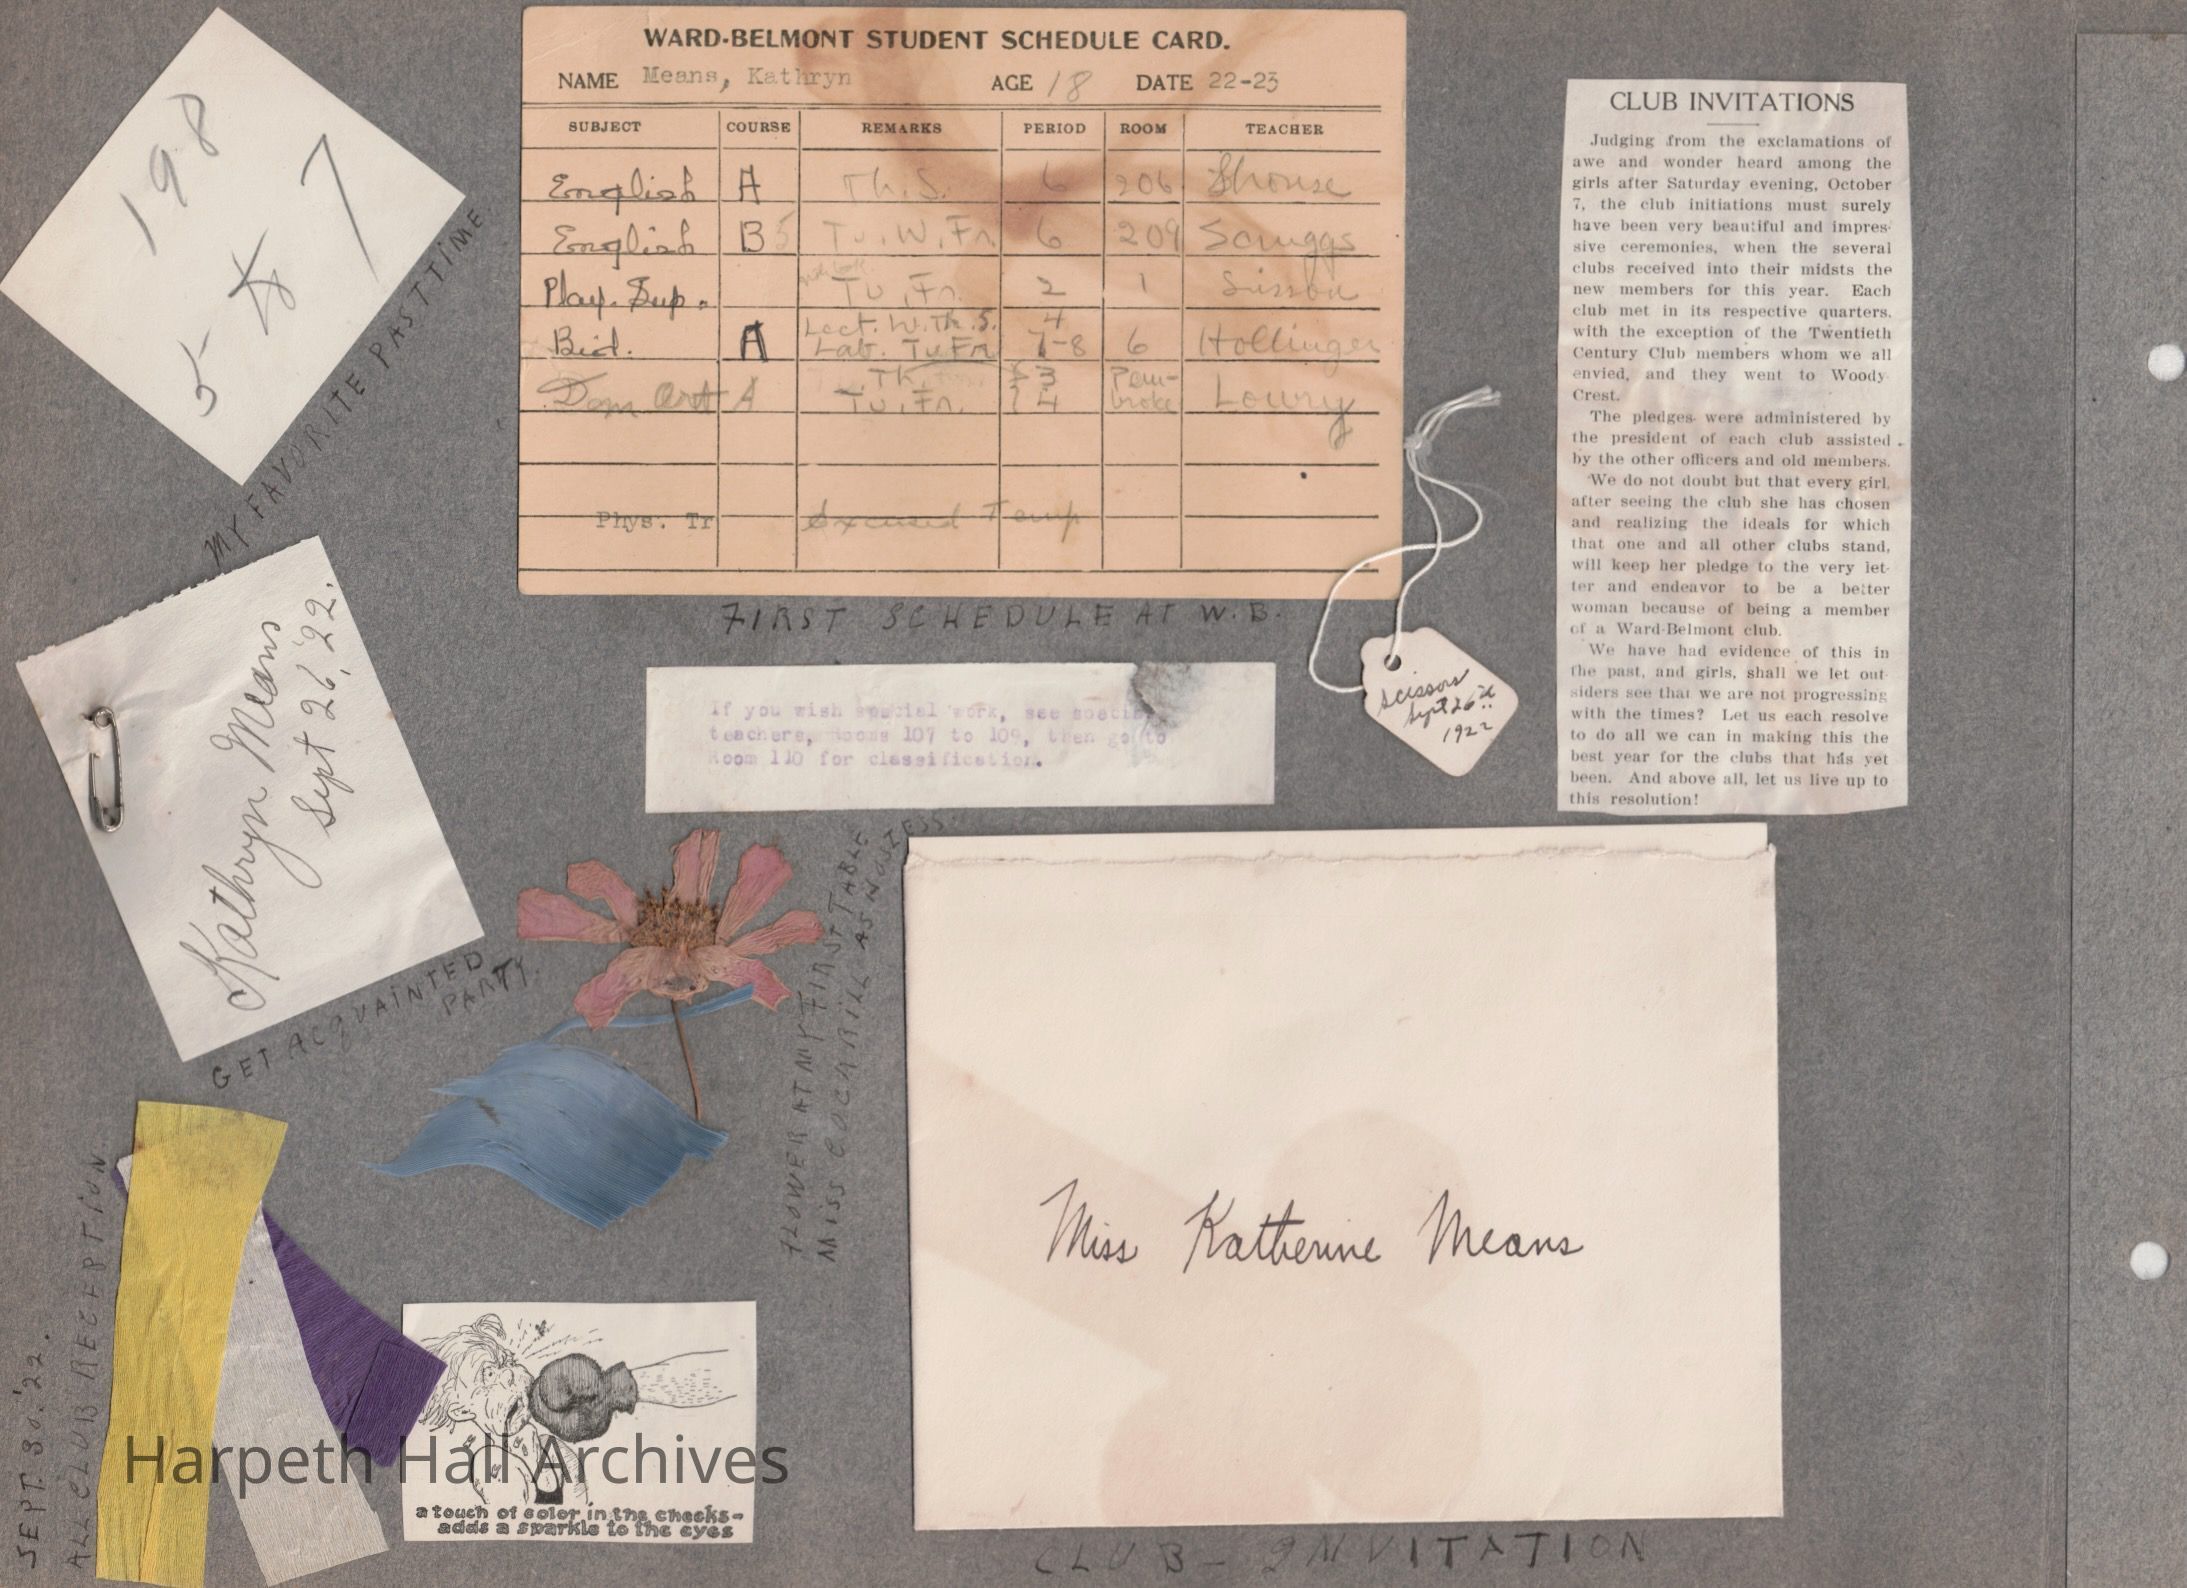 198
5 * 7
MY FAVORITE PASTTIME
WARD-BELMONT STUDENT SCHEDULE CARD.
NAME Means, Kathryn AGE 18 DATE 22-23
SUBJECT COURSE REMARKS PERIOD ROOM TEACHER
English A Th. S. 6 206 Shouse
English B 5 Tu. W. Fr. 6 209 Scruggs
Play. Sup. Tu, Fr. 2 1 Sisson
Biol. A Lect. W. Th. S. 4
Lab. Tu Fr 7-8 6 Hollinger
Dom Art A Th. 3 Pem-
Tu, Fr. 4 broke Lowry
Phys. Tr Excused Temp
FIRST SCHEDULE AT W. B.
CLUB INVITATIONS
Judging from the exclamations of
awe and wonder heard among the
girls after Saturday evening, October
7, the club initiations must surely
have been very beautiful and impres-
sive ceremonies, when the several
clubs received into their midsts the
new members for this year. Each
club met in its respective quarters,
with the exception of the Twentieth
Century Club members whom we all
envied, and they went to Woody
Crest.
The pledges were administered by
the president of each club assisted
by the other officers and old members.
We do not doubt but that every girl,
after seeing the club she has chosen
and realizing the ideals for which
that one and all other clubs stand,
will keep her pledge to the very let-
ter and endeavor to be a better
woman because of being a member
of a Ward-Belmont club.
We have had evidence of this in
the past, and girls, shall we let out-
siders see that we are not progressing
with the times? Let us each resolve
to do all we can in making this the
best year for the clubs that has yet
been. And above all, let us live up to
this resolution!
Kathryn Means
Sept 26, '22.
GET ACQUAINTED
PARTY.
If you wish special work, see special
teachers, Rooms 107 to 109, then go to
Room 110 for classification.
Scissors
Sept 26
1922
FLOWER AT MY FIRST TABLE
MISS COCKRILL AS HOSTESS.
Miss Katherine Means
CLUB - INVITATION
SEPT. 30. '22.
ALL CLUB RECEPTION
a touch of color in the cheeks-
adds a sparkle to the eyes
Harpeth Hall Archives